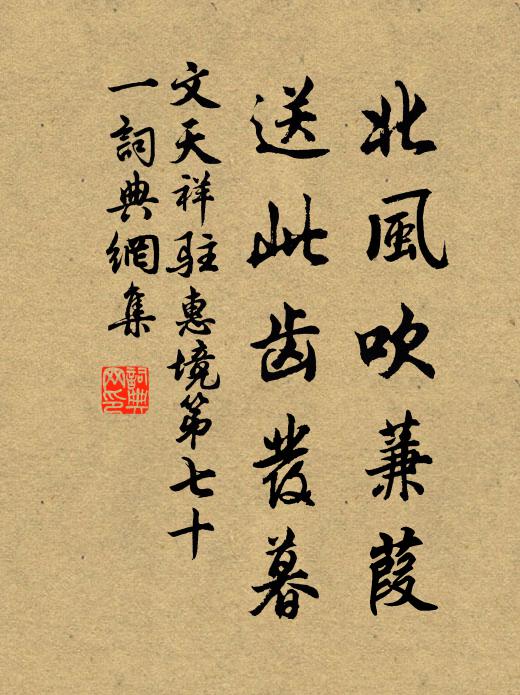 北風吹蒹葭
送此齿發暮
文天祥駐惠境第七十
一詞典網集
詞典
网印